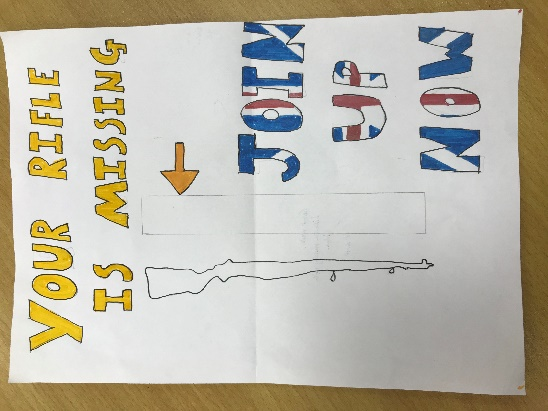 YOUR RIFLE
IS MISSING
JOIN
UP
NOW